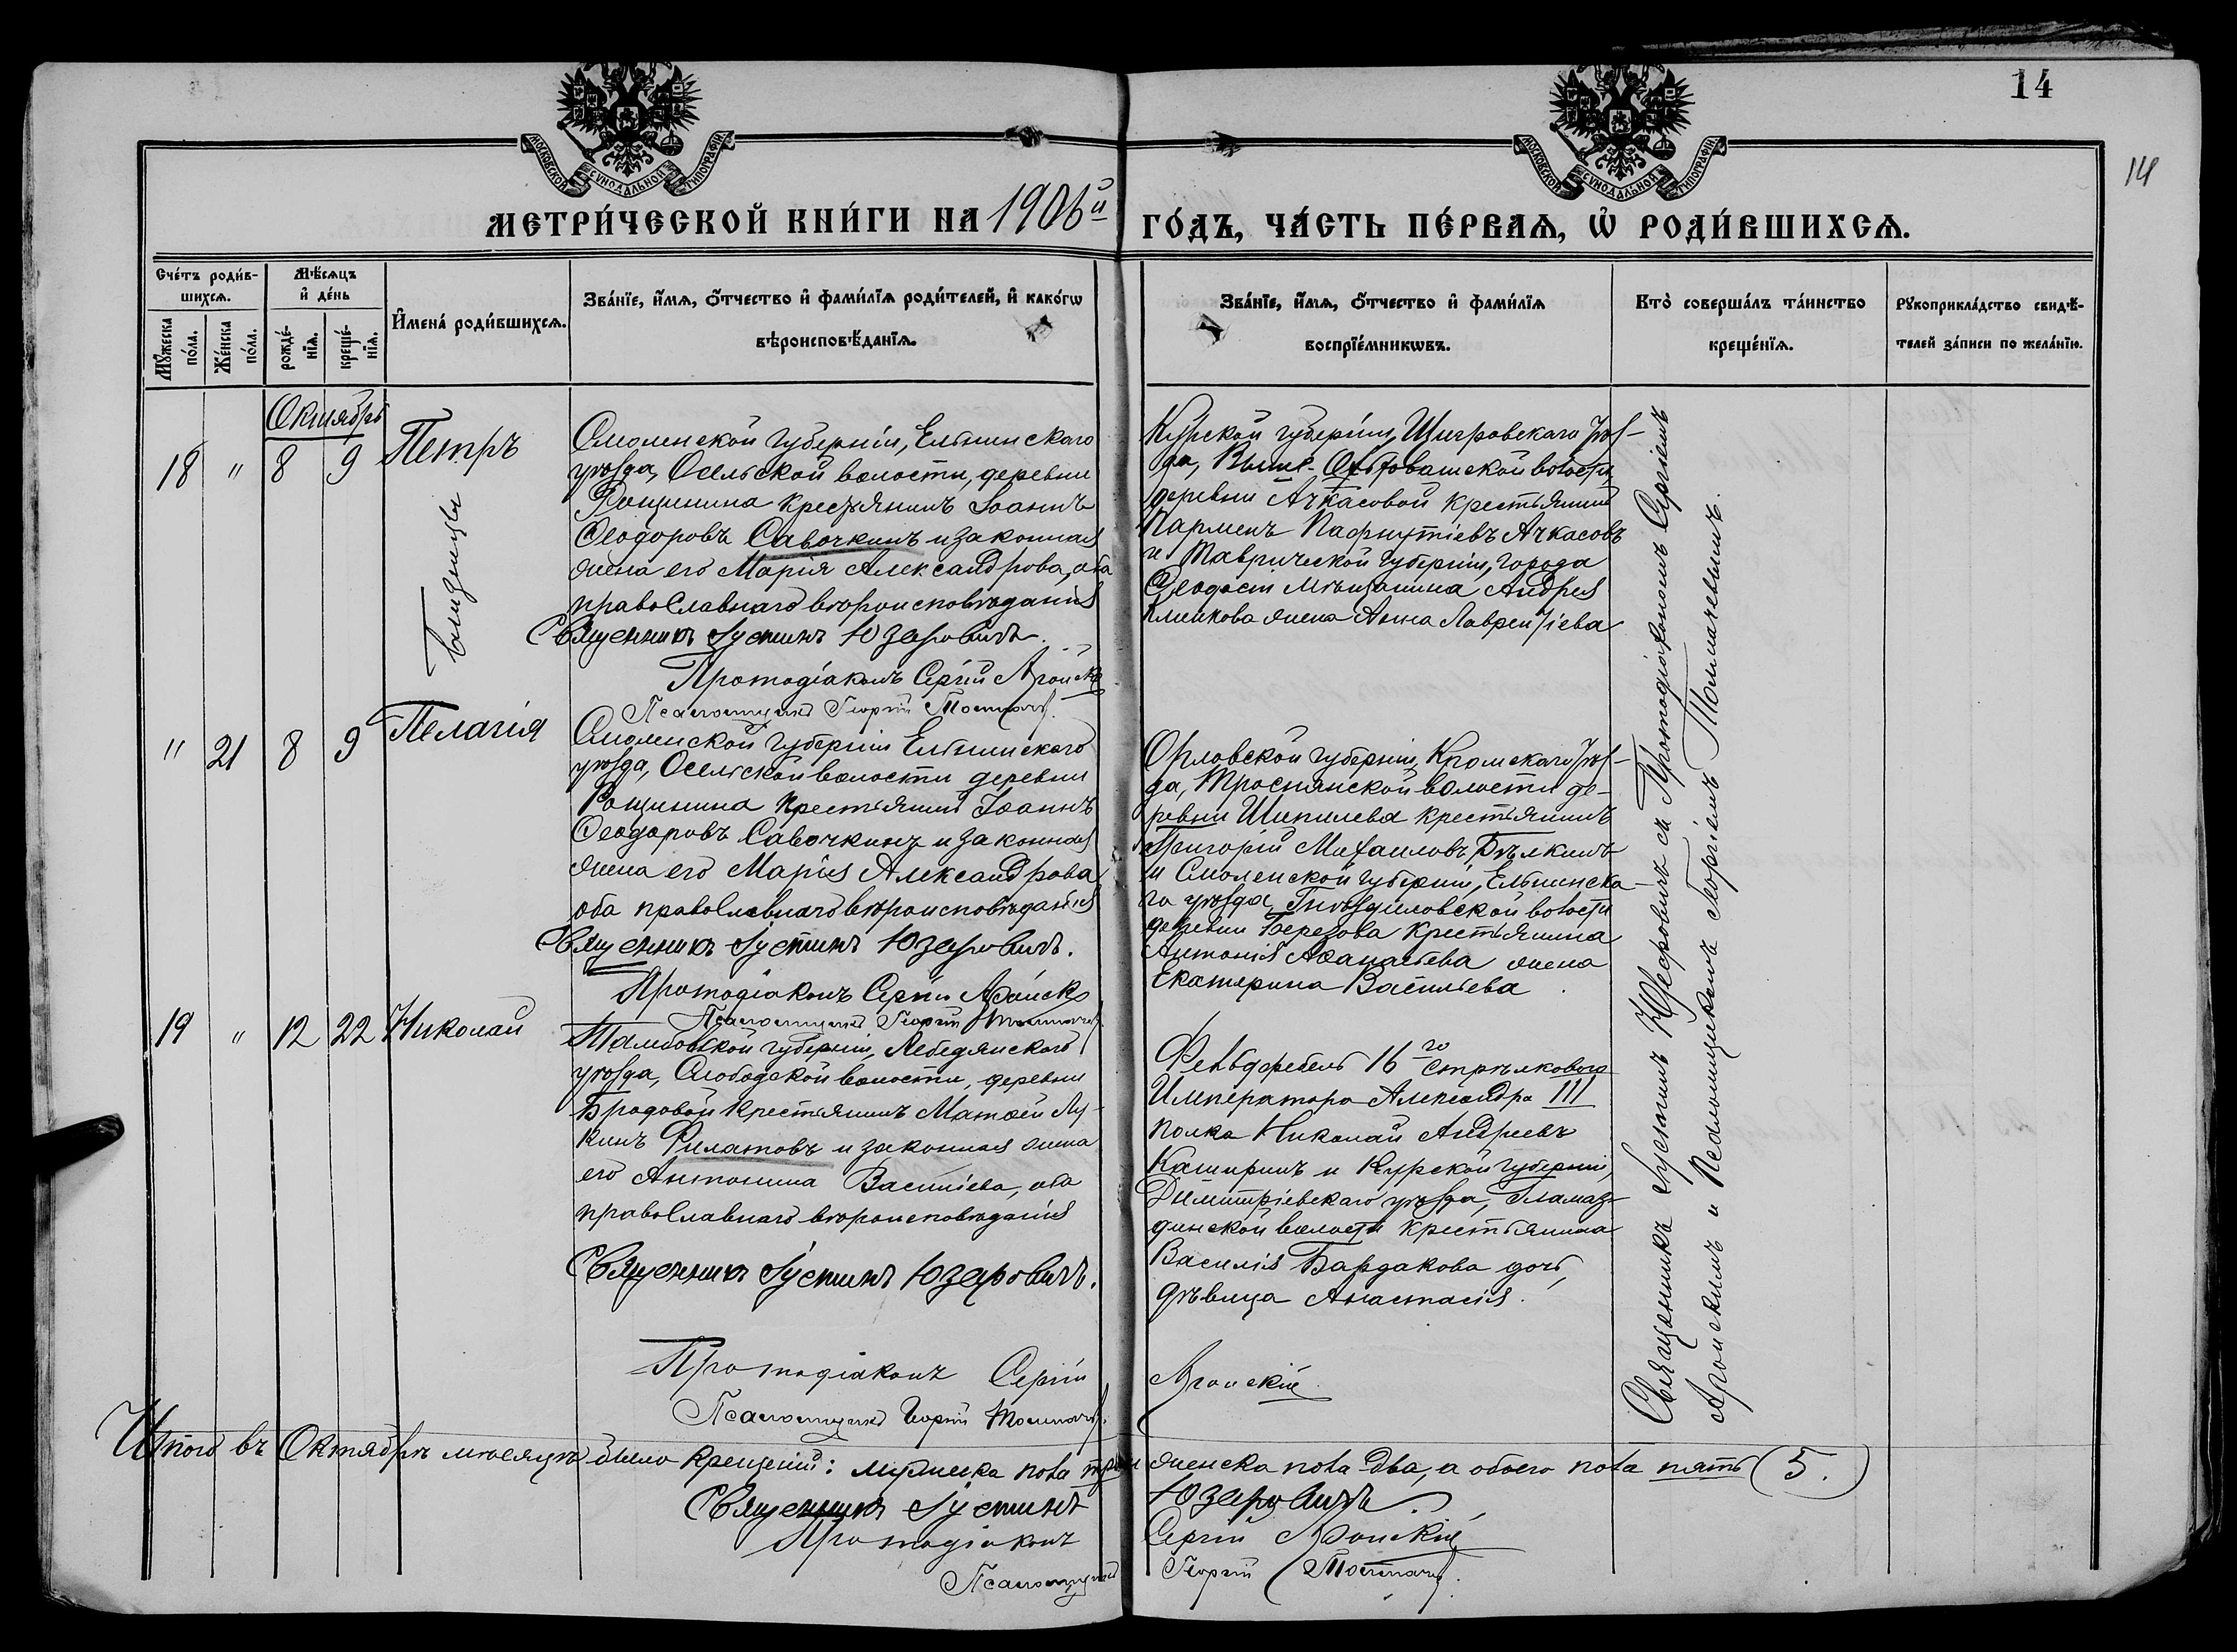 14
14
МОСКОВСКОЙ СУНОДАЛЬНОЙ ТИПОГРАФІИ
МОСКОВСКОЙ СУНОДАЛЬНОЙ ТИПОГРАФІИ
МЕТРИ́ЧЕСКОЙ КНИ́ГИ НА 1906й ГО́ДЪ, ЧА́СТЬ ПЕ́РВАѦ, Ѡ҆ РОДИ́ВШИХСѦ.
Сче́тъ роди́в-
шихсѧ.
Мꙋ́жеска
по́ла.
Же́нска
по́ла.
Мѣ́сѧцъ
и҆ де́нь
рожде́-
нїѧ.
креще́-
нїѧ.
И҆мена́ роди́вшихсѧ.
Зва́нїе, и҆́мѧ, ѻ҆́тчество и҆ фами́лїѧ роди́телей, и҆ како́гѡ
вѣроисповѣ́данїѧ.
Зва́нїе, и҆́мѧ, ѻ҆́тчество и҆ фами́лїѧ
воспрїе́мникѡвъ.
Кто̀ соверша́лъ та́инство
креще́нїѧ.
Рꙋкоприкла́дство свидѣ́-
телей за́писи по жела́нїю.
Октябрь
18 " 8 9 Петръ
Близнецы
Смоленской губерніи, Ельнинскаго
уѣзда, Осельской волости, деревни
Рощинина крестьянинъ Іоаннъ
Ѳеодоровъ Савочкинъ и законная
жена его Марія Александрова, оба
православнаго вѣроисповѣданія
Священникъ Іустинъ Юзефовичъ.
Протодіаконъ Сергій Аронскій
Псаломщикъ Георгій
Курской губерніи, Щигровскаго уѣз-
да, Выше-Ольховатской волости,
деревни Ачкасовой крестьянинъ
Парменъ Пафнутіевъ Ачкасовъ
и Таврической губерніи, города
Ѳеодосіи мѣщанина Андрея
Климкова жена Анна Лаврентіева
" 21 8 9 Пелагія
Смоленской губерніи Ельнинскаго
уѣзда, Осельской волости деревни
Рощинина крестьянинъ Іоаннъ
Ѳеодоровъ Савочкинъ и законная
жена его Марія Александрова
оба православнаго вѣроисповѣданія
Священникъ Іустинъ Юзефовичъ.
Протодіаконъ Сергій Аронскій
Псаломщикъ Георгій
Орловской губерніи, Кромскаго уѣз-
да, Троснянской волости де-
ревни Шепилева крестьянинъ
Григорій Михаиловъ Бѣлкинъ
и Смоленской губерніи, Ельнинска-
го уѣзда, Гнѣздиловской волости
деревни Березова крестьянина
Антонія Аѳанасьева жена
Екатерина Васильева.
19 " 12 22 Николай
Тамбовской губерніи, Лебедянскаго
уѣзда, Слободской волости, деревни
Бродовой крестьянинъ Матѳей Лу-
кинъ Филатовъ и законная жена
его Антонина Василіева, оба
православнаго вѣроисповѣданія
Священникъ Іустинъ Юзефовичъ.
Протодіаконъ Сергій Аронскій
Псаломщикъ Георгій
Фельдфебель 16го стрѣлковаго
Императора Александра III
полка Николай Андреевъ
Каширинъ и Курской губерніи,
Димитріевскаго уѣзда, Гламаз-
динской волости крестьянина
Василія Бардакова дочь,
дѣвица Анастасія.
Священникъ Іустинъ Юзефовичъ съ Протодіакономъ Сергіемъ
Аронскимъ и Псаломщикомъ Георгіемъ
Итого въ Октябрѣ мѣсяцѣ было крещеній: мужеска пола три женска пола два, а обоего пола пять (5.)
Священникъ Іустинъ Юзефовичъ.
Протодіаконъ Сергій Аронскій
Псаломщикъ Георгій